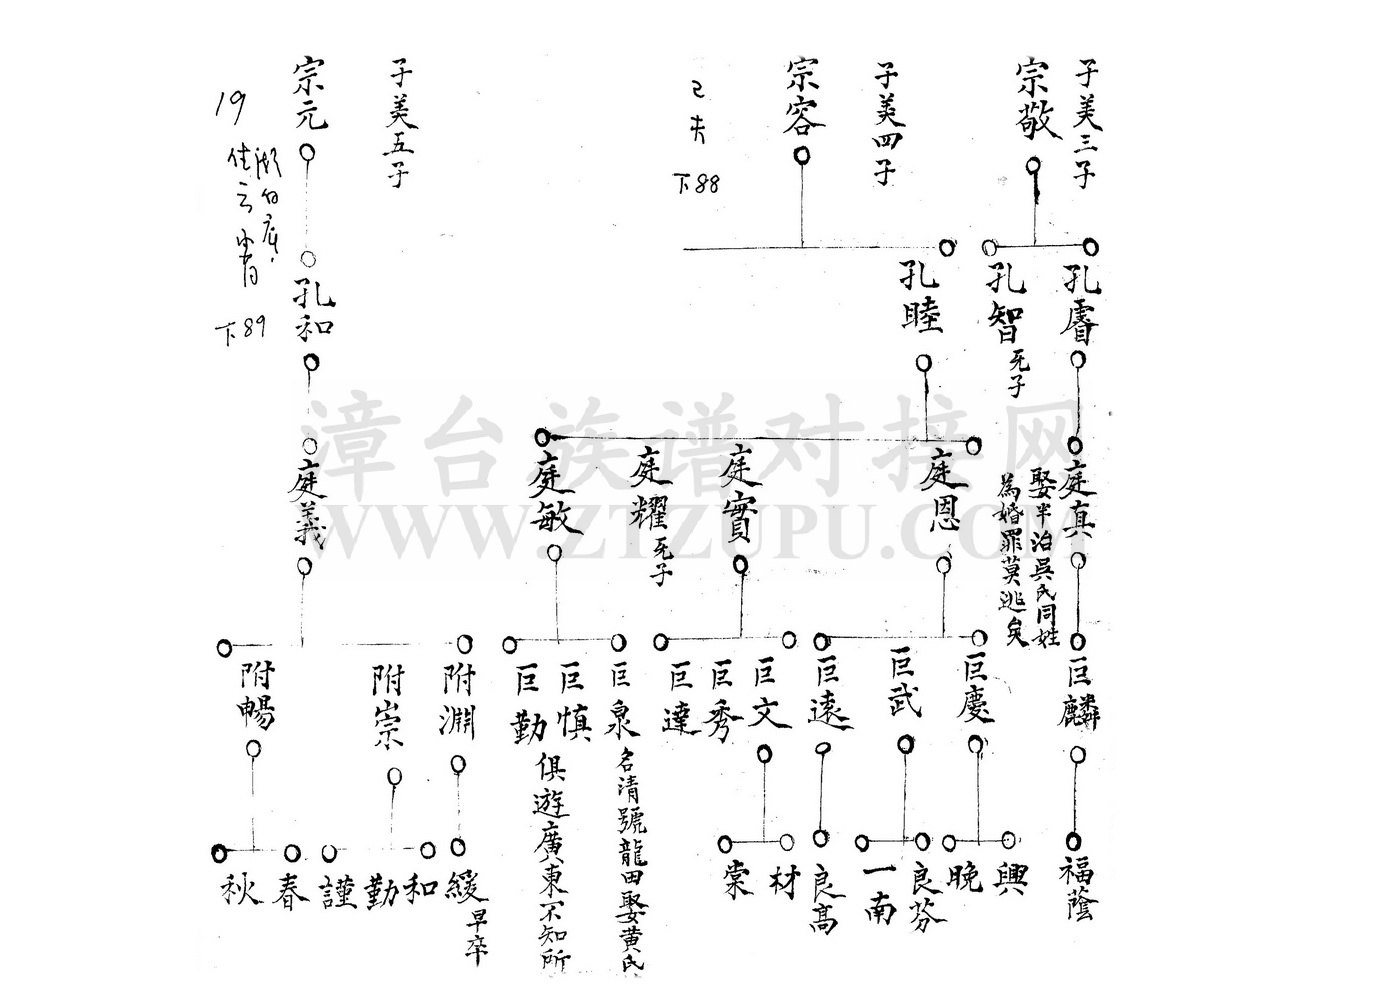 子美三子
宗敬
子美四子
宗容
下88
子美五子
宗元
19
下89
孔睿
孔智
无子
孔睦
孔和
庭真
娶半治吳氏同姓
為婚罪莫逃矣
庭恩
庭實
庭耀
无子
庭敏
庭義
巨麟
巨慶
巨武
巨遠
巨文
巨秀
巨達
巨泉
名清號龍田娶黃氏
巨慎
巨勤
俱遊廣東不知所
附淵
附崇
附暢
福蔭
興
晚
良芬
一南
良高
材
棠
緩
早卒
和
勤
謹
春
秋
漳台族谱对接网
WWW.ZTZUPU.COM